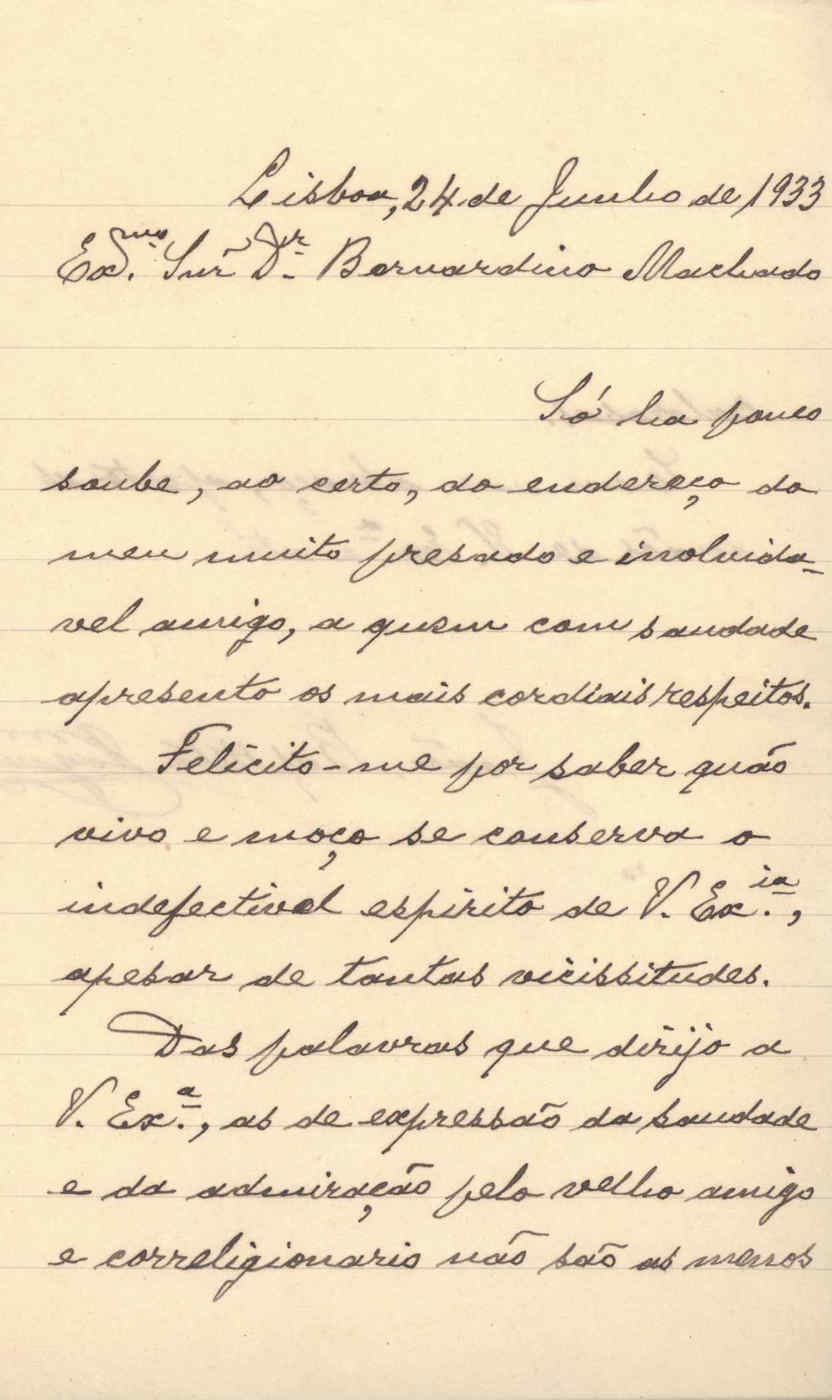 Lisboa, 24 de Junho de 1933
Ex.mo Snr Dr. Bernardino Machado
Só ha pouco
soube, ao certo, do endereço do
meu muito presado e inolvida-
vel amigo, a quem com saudade
apresento os mais cordiais respeitos.
Felicito-me por saber quão
vivo e moço se conserva o
indefectivel espirito de V. Ex.ia,
apesar de tantas vicissitudes.
Das palavras que dirijo a
V. Ex.a, as de expressão da saudade
e da admiração pelo velho amigo
e correligionario não são as menos